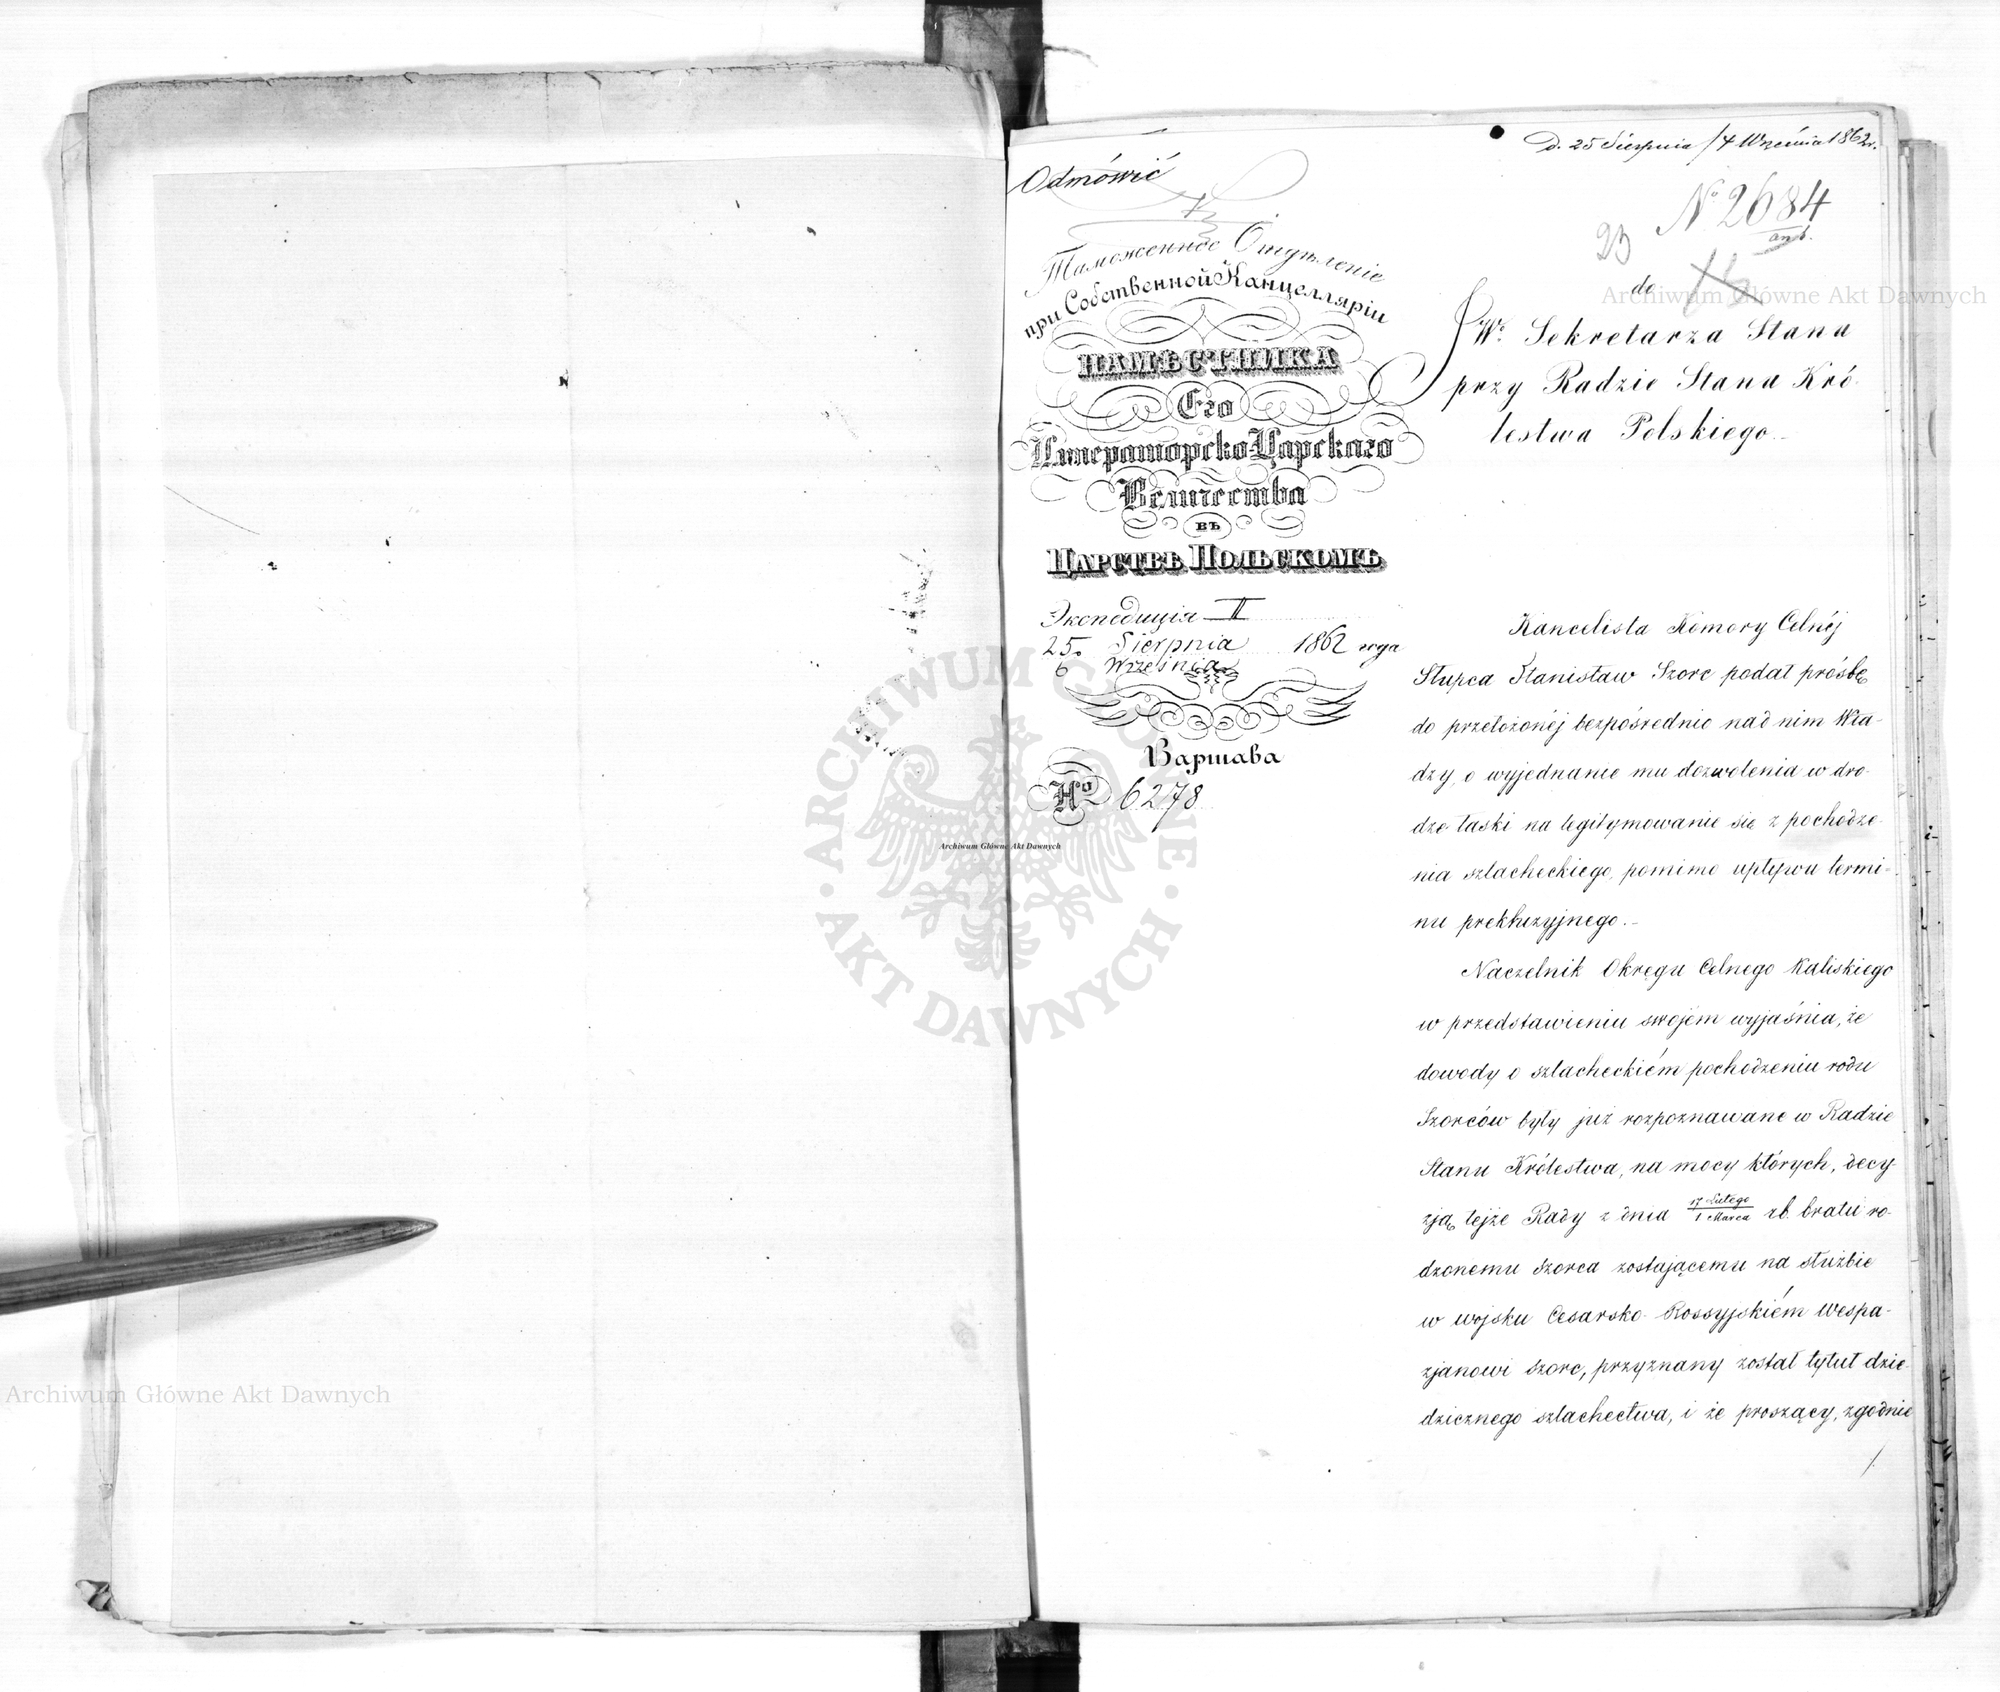 D. 25 Sierpnia / 4 Września 1862 r.
Odmówić
№ 2684
23
Таможенное Отдѣленіе
при Собственной Канцелляріи
НАМѢСТНИКА
Его
Императорско-Царскаго
Величества
въ
ЦАРСТВѢ ПОЛЬСКОМЪ
Экспедиція II
25 Sierpnia 1862 года
6 Września
Варшава
№ 6278
do
W° Sekretarza Stanu
przy Radzie Stanu Kró-
lestwa Polskiego.
Kancelista Komory Celnéj
Słupca Stanisław Szorc podał prósbę
do przełożonéj bezpośrednio nad nim Wła-
dzy, o wyjednanie mu dozwolenia w dro-
dze łaski na legitymowanie się z pochodze-
nia szlacheckiego, pomimo upływu termi-
nu prekluzyjnego.
Naczelnik Okręgu Celnego Kaliskiego
w przedstawieniu swojem wyjaśnia, że
dowody o szlacheckiém pochodzeniu rodu
Szorców były już rozpoznawane w Radzie
Stanu Królestwa, na mocy których, decy-
zją tejże Rady z dnia 17 Lutego / 1 Marca rb. bratu ro-
dzonemu Szorca zostającemu na służbie
w wojsku Cesarsko-Rossyjskiém Wespa-
zjanowi Szorc, przyznany został tytuł dzie-
dzicznego szlachectwa, i że proszący, zgodnie
Archiwum Główne Akt Dawnych
ARCHIWUM GŁÓWNE AKT DAWNYCH
Archiwum Główne Akt Dawnych
Archiwum Główne Akt Dawnych